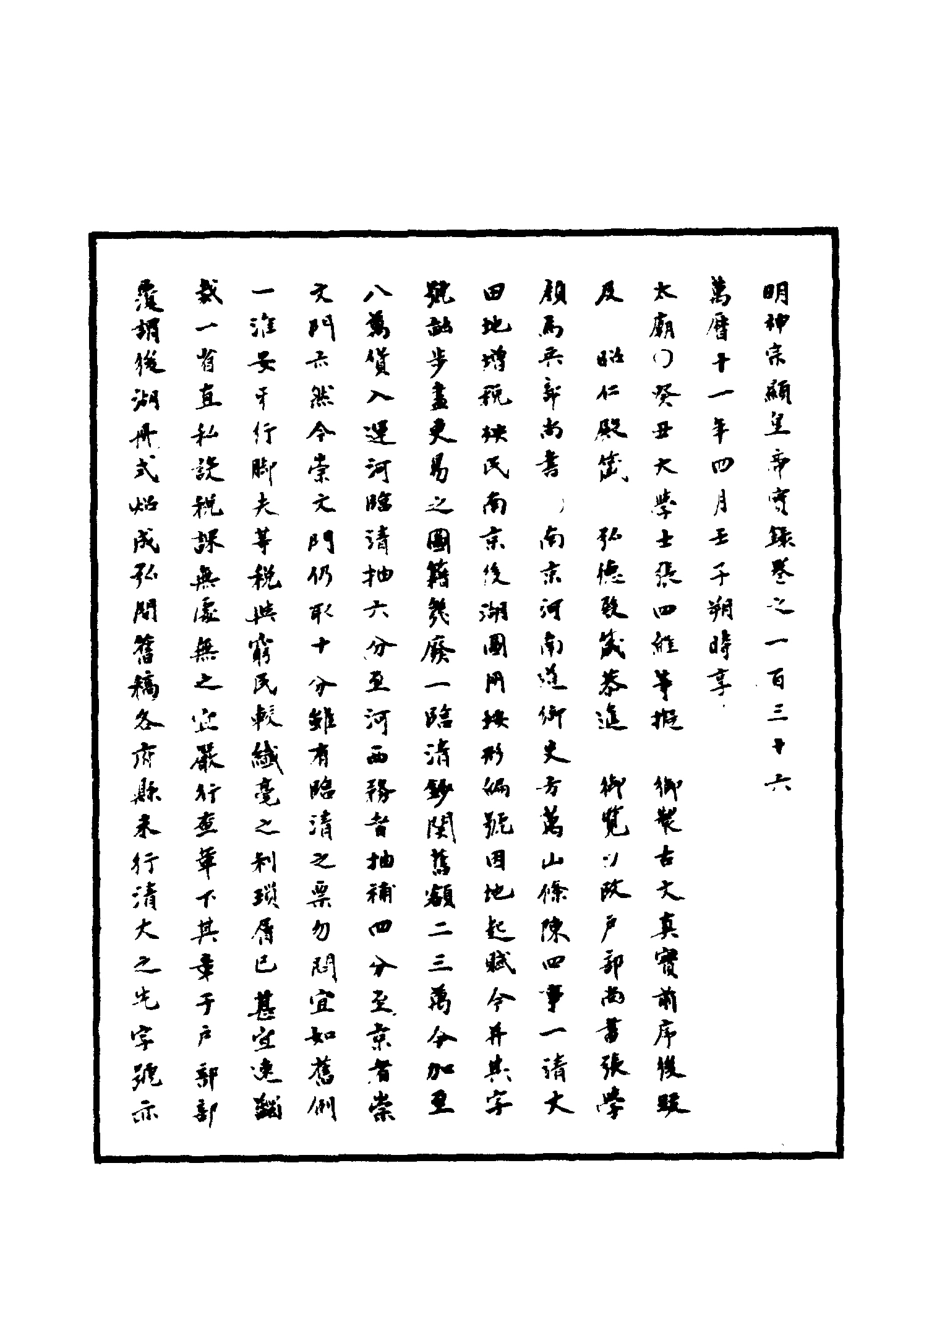 明神宗顯皇帝實錄卷之一百三十六
萬曆十一年四月壬子朔時享
太廟〇癸丑大學士張四維等擬　御製古文真寶前序後跋
及　昭仁殿箴　弘德殿箴恭進　御覽〇改戶部尚書張學
顏為兵部尚書〇南京河南道御史方萬山條陳四事一清丈
田地增稅殃民南京後湖圖冊按形編號因地起賦今并其字
號畝步盡更易之圖籍幾廢一臨清鈔関舊額二三萬今加至
八萬貨入運河臨清抽六分至河西務者抽補四分至京者崇
文門亦然今崇文門仍取十分雖有臨清之票勿問宜如舊例
一淮安牙行腳夫等稅與窮民較纖毫之利瑣屑已甚宜速蠲
裁一省直私設稅課無處無之宜嚴行查革下其章于戶部部
覆謂後湖冊式炤成弘間舊稿各府縣未行清丈之先字號亦